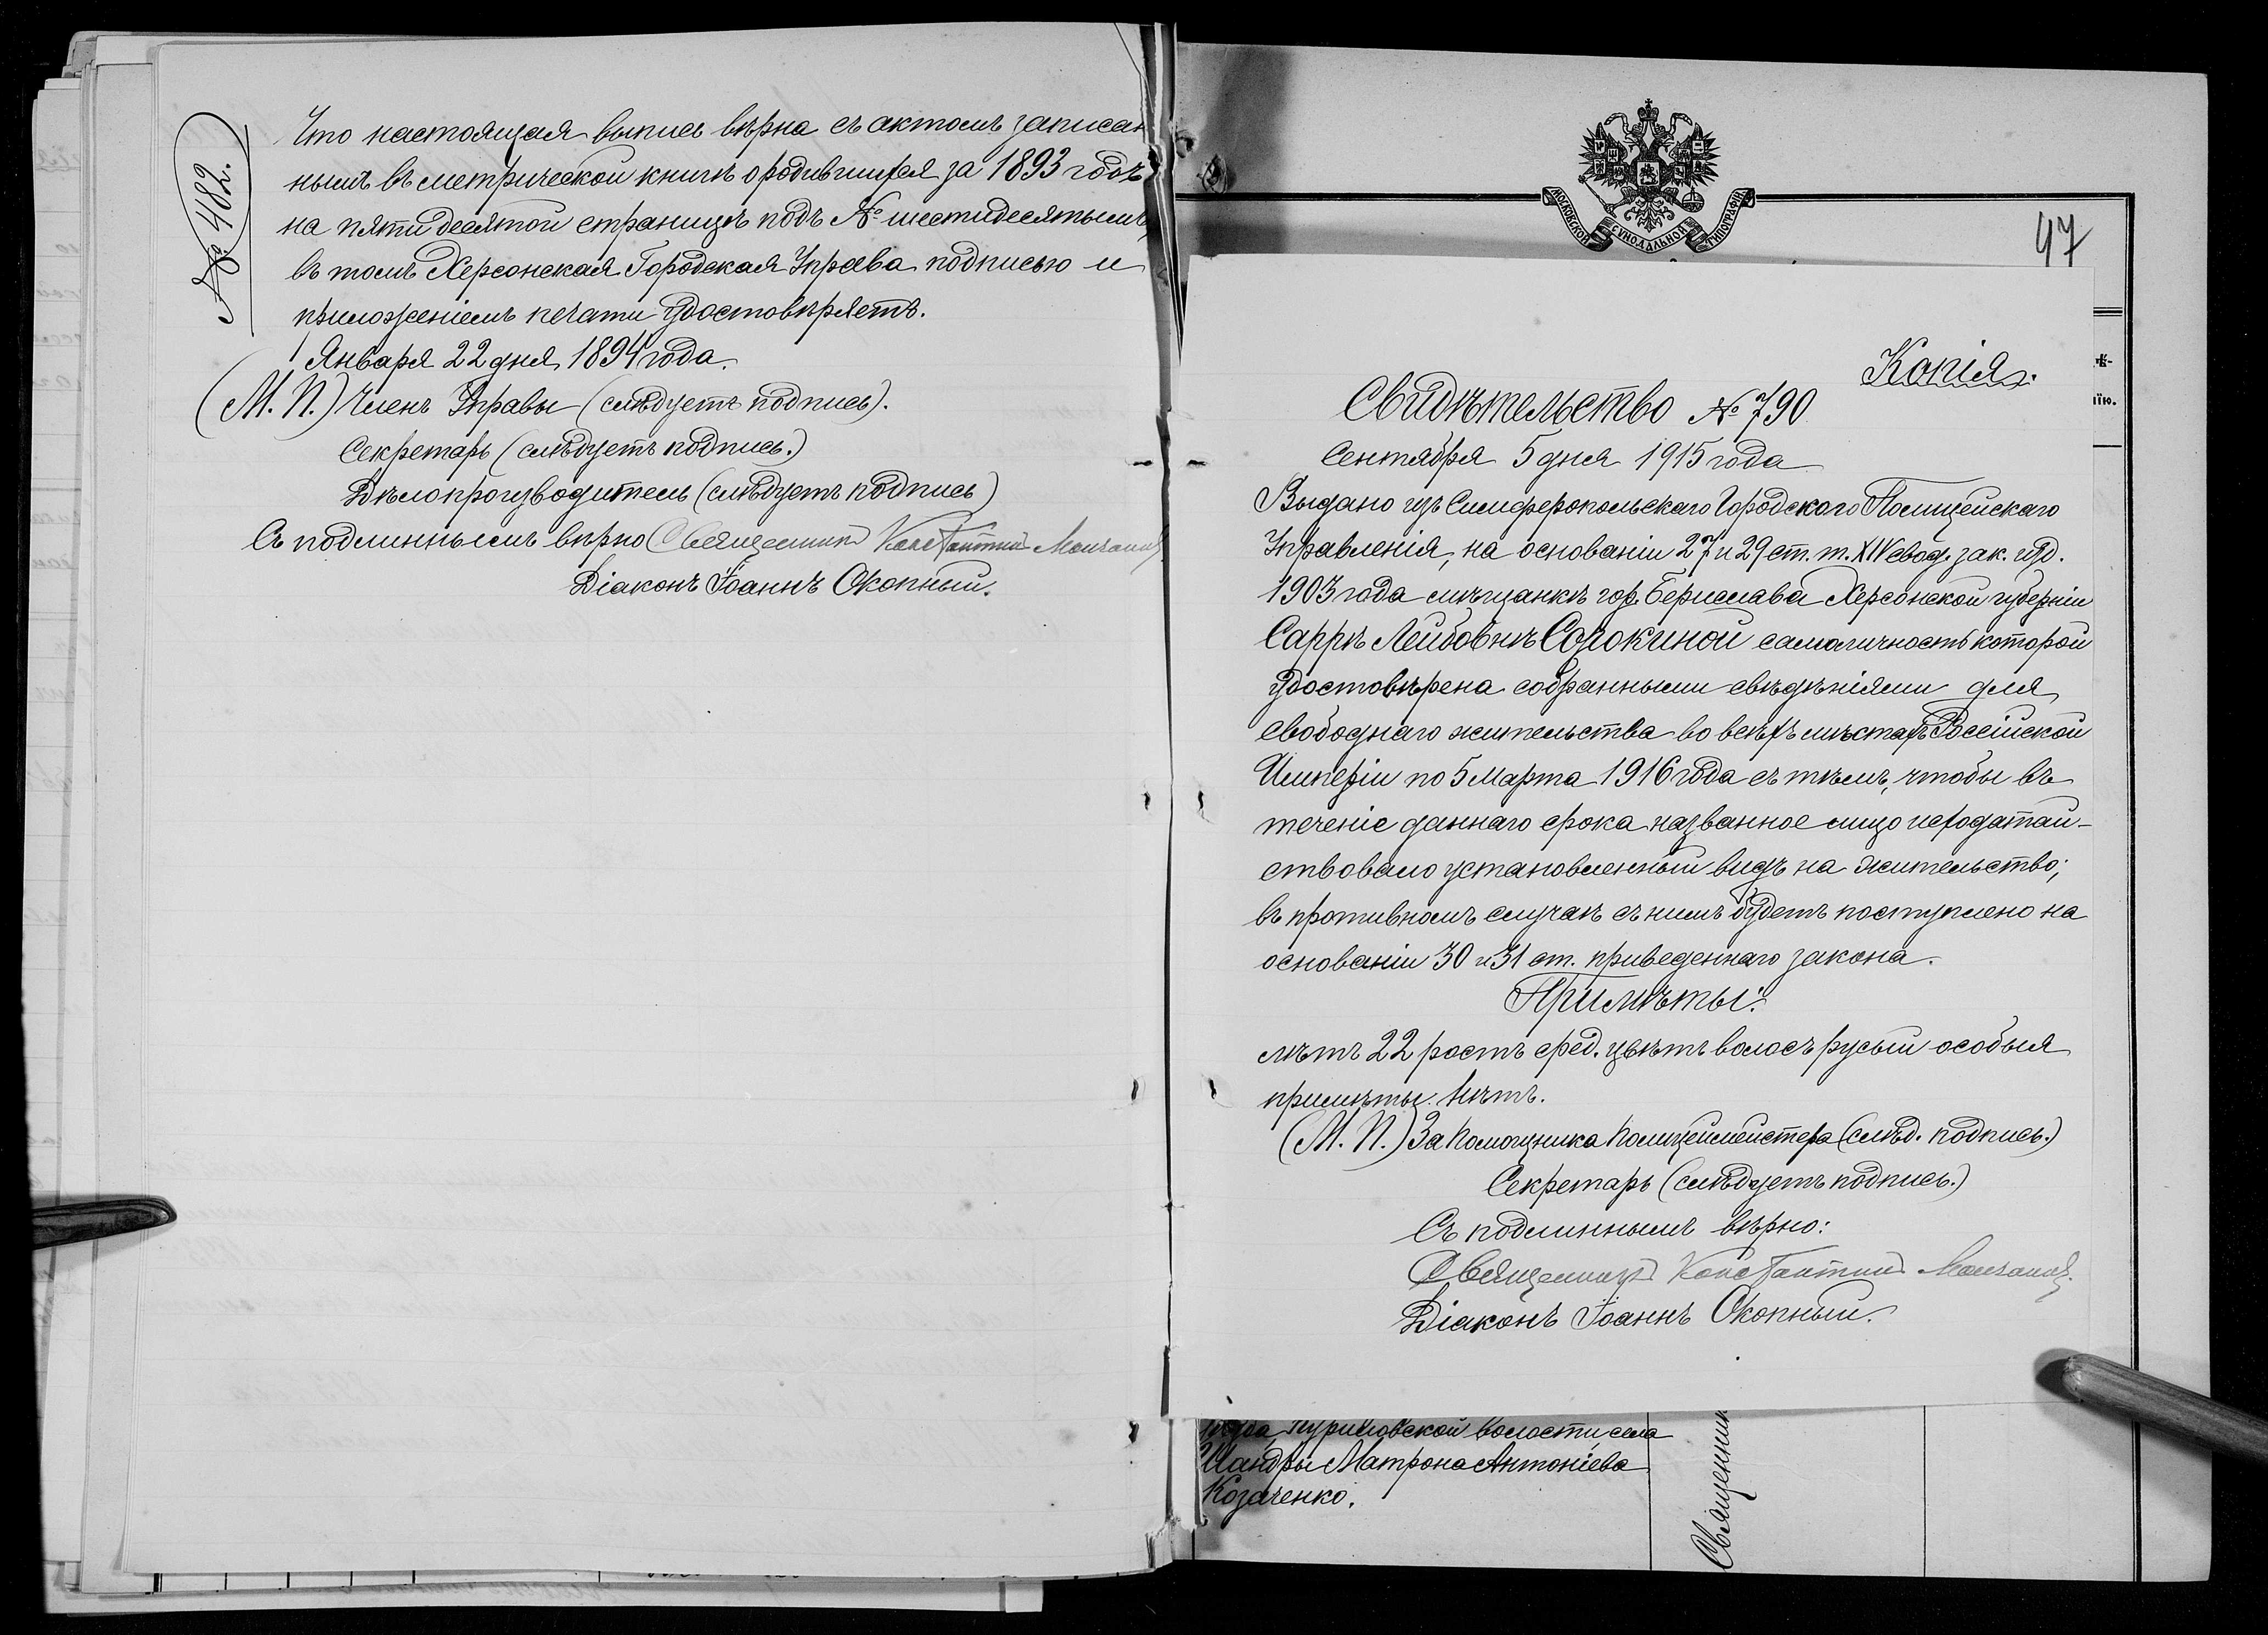 № 482.
Что настоящая выпись вѣрна съ актомъ записан
нымъ въ метрической книгѣ о родившихся за 1893 годъ
на пятидесятой страницѣ подъ № шестидесятымъ,
въ томъ Херсонская Городская Управа подписью и
приложеніемъ печати удостовѣряетъ.
Января 22 дня 1894 года.
(М. П.) Членъ Управы (слѣдуетъ подпись).
Секретарь (слѣдуетъ подпись.)
Дѣлопроизводитель (слѣдуетъ подпись)
Съ подлиннымъ вѣрно Священникъ Константинъ
Діаконъ Іоаннъ Окопный.
МОСКОВСКОЙ СѴНОДАЛЬНОЙ ТИПОГРАФІИ
47
Копія.
Свидѣтельство № 790
Сентября 5 дня 1915 года
Выдано изъ Симферопольскаго Городского Полицейскаго
Управленія, на основаніи 27 и 29 ст. т. XIV свод. зак. изд.
1903 года мѣщанкѣ гор. Берислава Херсонской губерніи
Саррѣ Лейбовнѣ Сорокиной самоличность которой
удостовѣрена собранными свѣдѣніями для
свободнаго жительства во всѣхъ мѣстахъ Россійской
Имперіи по 5 Марта 1916 года съ тѣмъ, чтобы въ
теченіе даннаго срока названное лицо исходатай-
ствовало установленный видъ на жительство;
въ противномъ случаѣ съ нимъ будетъ поступлено на
основаніи 30 и 31 ст. приведеннаго закона.
Примѣты:
лѣтъ 22 ростъ сред. цвѣтъ волосъ русый особыя
примѣты нѣтъ.
(М. П.) За Помощника Полицеймейстера (слѣд. подпись.)
Секретарь (слѣдуетъ подпись.)
Съ подлиннымъ вѣрно:
Священникъ Константинъ
Діаконъ Іоаннъ Окопный.
ѣ-
іію.
волости, села
Матрона Антоніева
Козаченко.
Священник